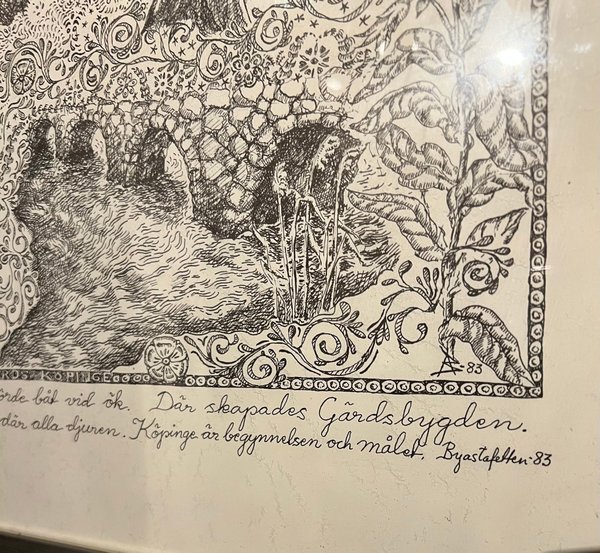 -83
ROS KÖPINGE
örde båt vid ök. Där skapades Gärdsbygden.
där alla djuren. Köpinge är begynnelsen och målet. Byastafetten-83